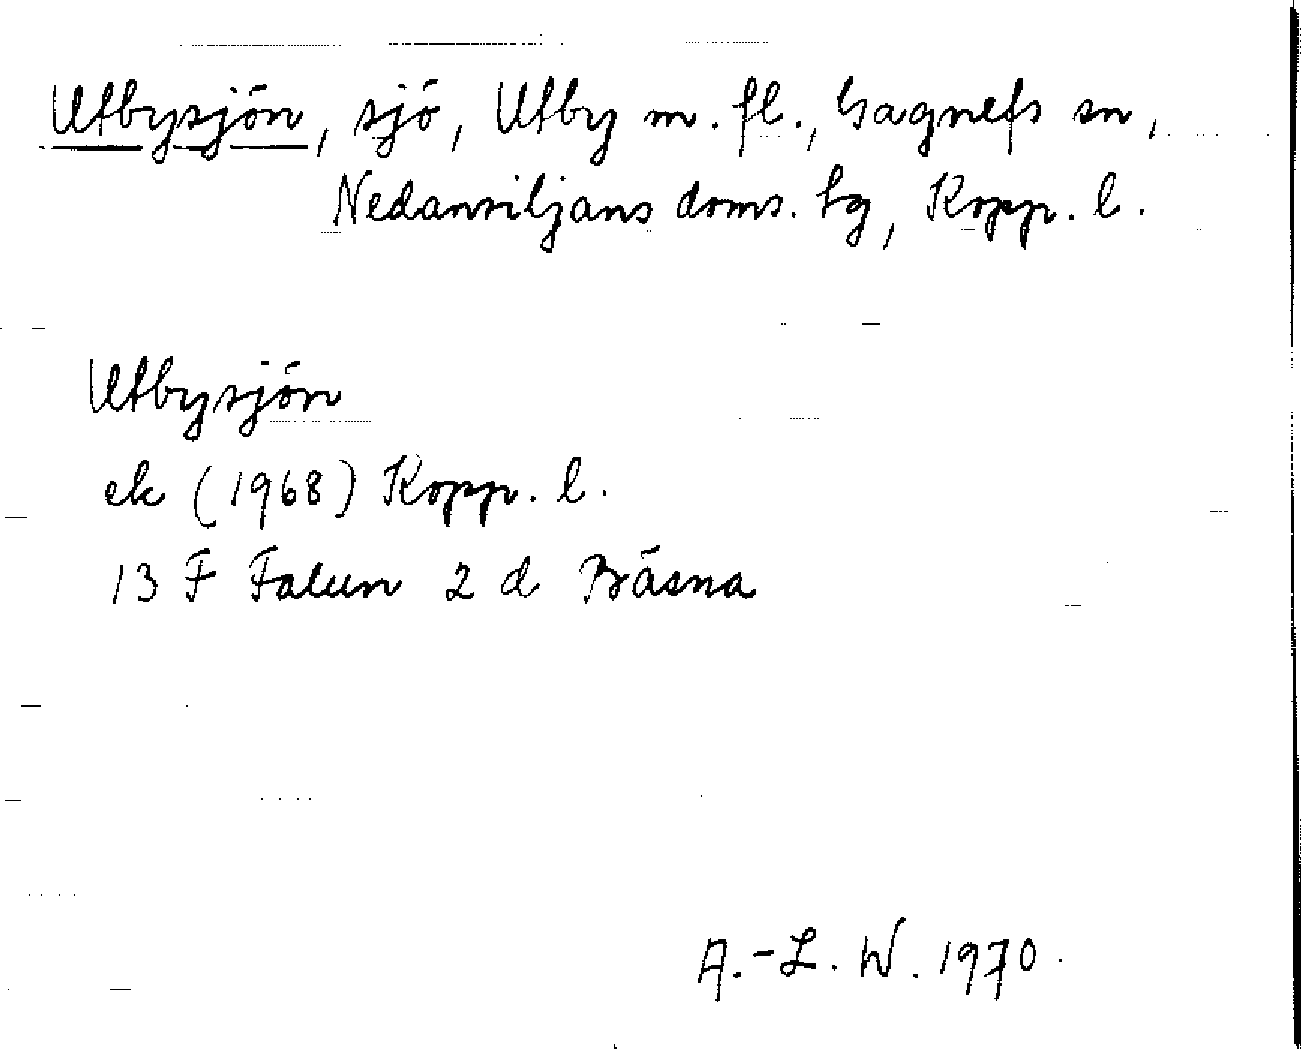 Utbysjön, sjö, Utby m. fl., Gagnefs sn,
Nedansiljans doms. tg, Kopp. l.
Utbysjön
ek (1968) Kopp. l.
13 F Falun 2 d Bäsna
A.-L. W. 1970.